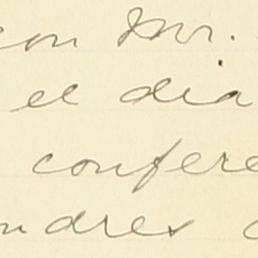 con Mr.
el dia
confere
ndres